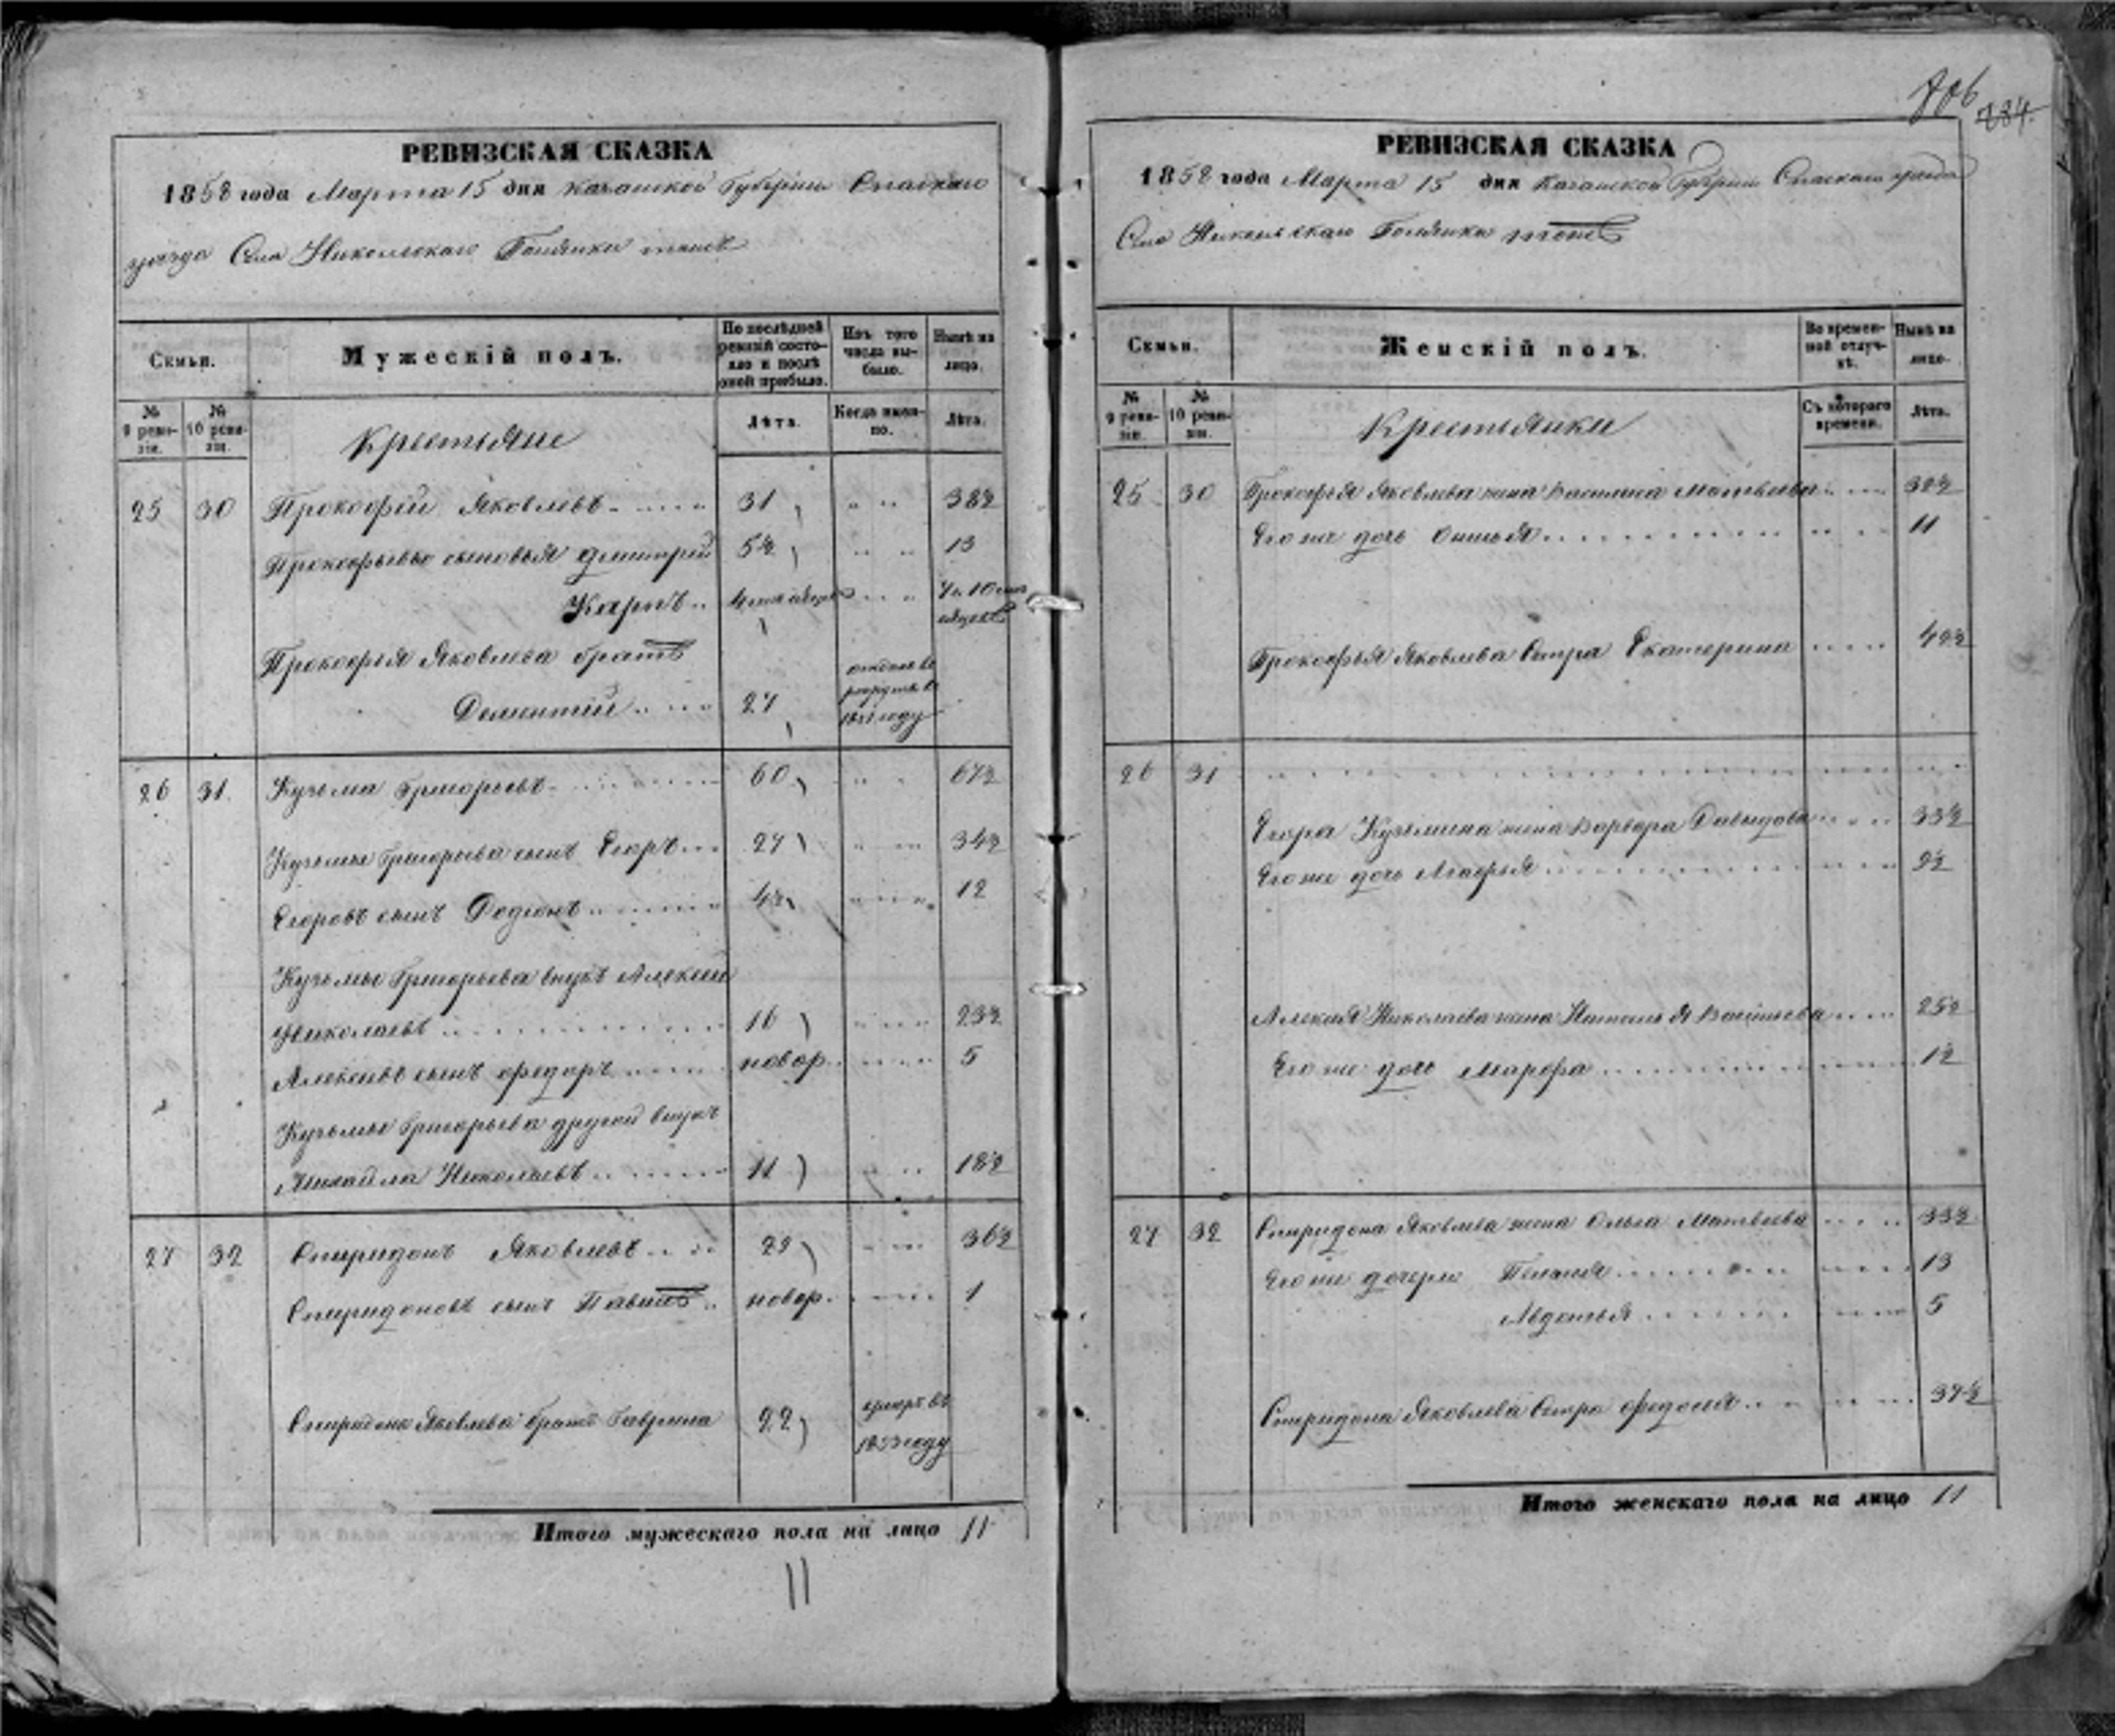 РЕВИЗСКАЯ СКАЗКА
1858 года Марта 15 дня Казанской Губернiи Спаскаго
уезда Села Никольскаго Полянки тожъ
Семьи.
Мужескiй полъ.
По послѣдней ревизiи состояло и послѣ оной прибыло.
Изъ того числа выбыло.
Нынѣ на лицо.
№ 9 ревизiи.
№ 10 ревизiи.
Крестьяне
Лѣта.
Когда именно.
Лѣта.
25 30 Прокофiй Яковлевъ 31 38½
Прокофьевы сыновья Дмитрiй 5½ 13
Карпъ
Прокофья Яковлева братъ
Дементiй 27 отданъ въ рекруты въ году
26 31. Кузьма Григорьевъ 60 67½
Кузьмы Григорьева сынъ Егоръ 27 34½
Егоровъ сынъ Родiонъ 4½ 12
Кузьмы Григорьева внукъ Алексей
Николаевъ 16 23½
Алексеевъ сынъ Федоръ новор. 5
Кузьмы Григорьева другой внукъ
Михайла Николаевъ 11 18½
27 32 Спиридонъ Яковлевъ 29 36½
Спиридоновъ сынъ новор. 1
Спиридона Яковлева братъ Гаврила 22 умеръ въ 1853 году
Итого мужескаго пола на лицо 11
11
806
284.
РЕВИЗСКАЯ СКАЗКА
1858 года Марта 15 дня Казанской Губернiи Спаскаго уезда
Села Никольскаго Полянки тожъ
Семьи.
Женскiй полъ.
Во временной отлучкѣ.
Нынѣ на лицо.
№ 9 ревизiи.
№ 10 ревизiи.
Крестьянки
Съ котораго времени.
Лѣта.
25 30 Прокофья Яковлева жена Василиса Матвеева
Его же дочь 11
Прокофья Яковлева сестра Екатерина
26 31
Егора Кузьмина жена Варвара Давыдова 33½
Его же дочь
Алексея Николаева жена Наталья 25½
Его же дочь Марфа 1½
27 32 Спиридона Яковлева жена Ольга Матвеева 33½
Его же дочери Пелагея 13
Авдотья 5
Спиридона Яковлева сестра Федосья
Итого женскаго пола на лицо 11